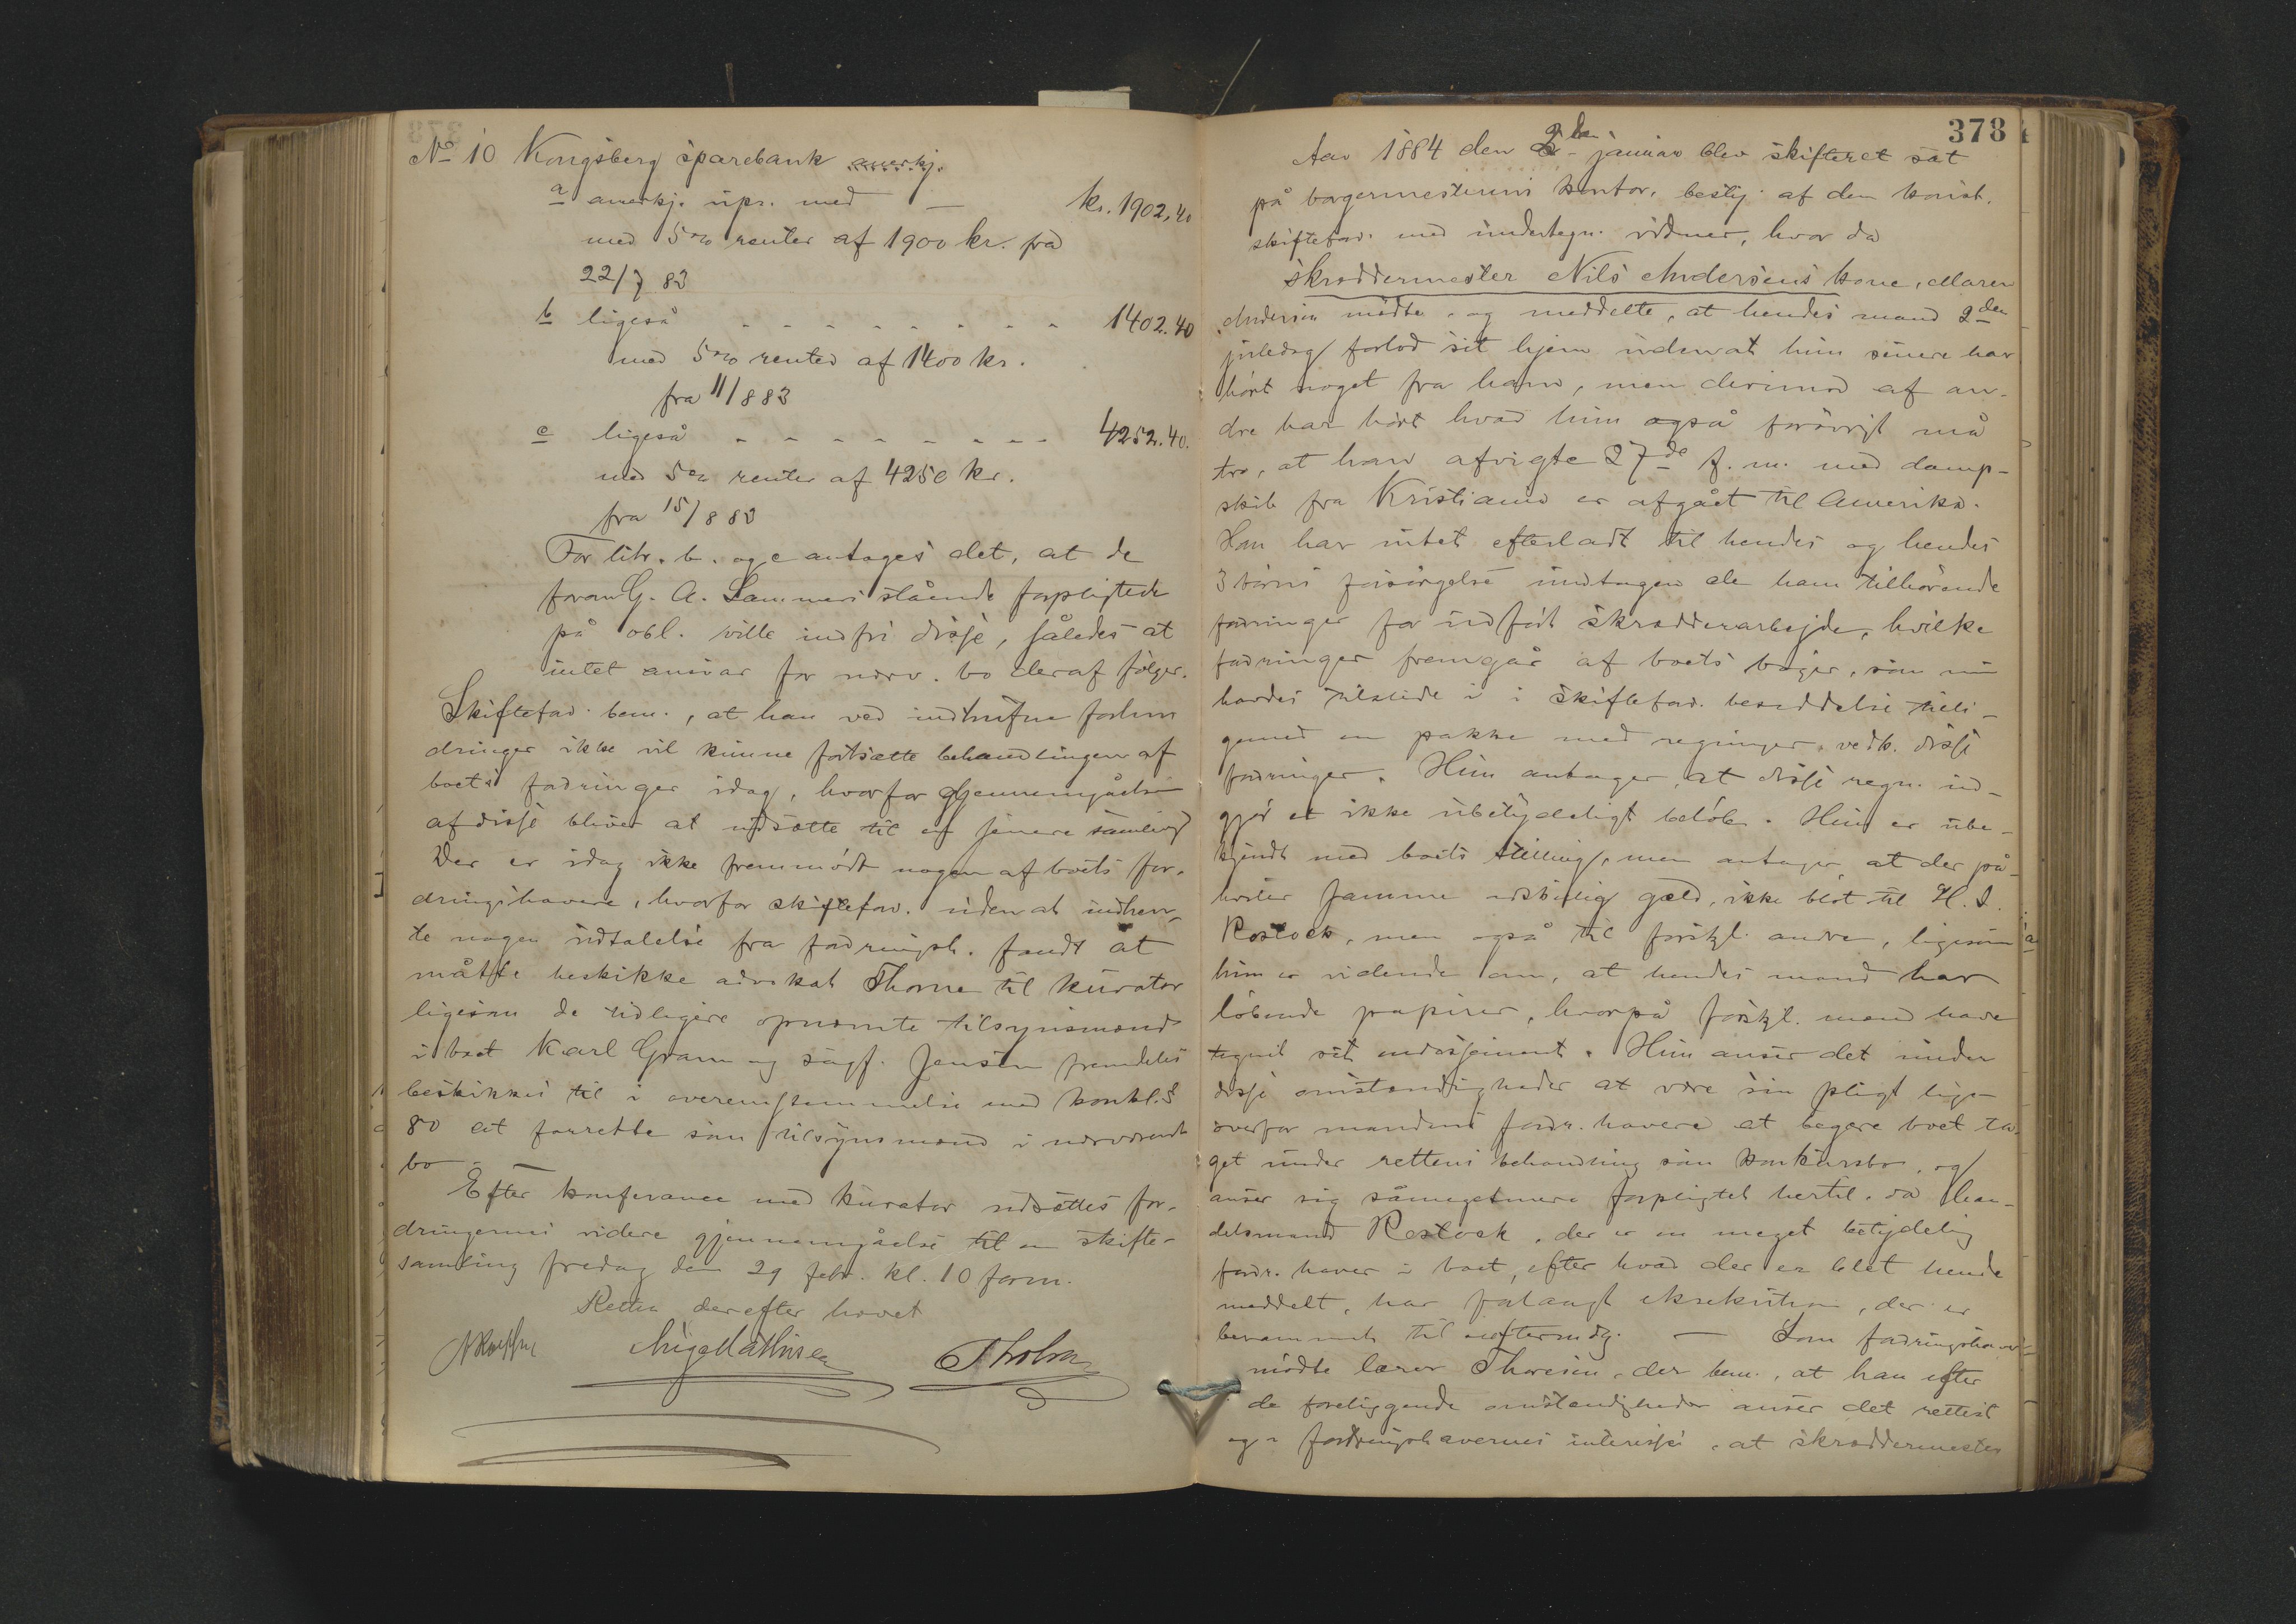 No 10 Kongsberg sparebank anerkj.
a anerkj. upr. med — kr. 1902,40
med 5% renter af 1900 kr. fra
22/7 83
b ligeså - - - - - - - - - 1402.40
med 5% renter af 1400 kr.
fra 11/8 83
c ligeså - - - - - - - - - 4252.40.
med 5% renter af 4250 kr.
fra 15/8 83
For litr. b. og c antages det, at de
foran G. A. Lammers stående forpligtede
på obl. ville indfri disse, således at
intet ansvar for nærv. bo deraf følger.
Skiftefor. bem., at han ved indtrufne forhin
dringer ikke vil kunne fortsætte behandlingen af
boets fordringer idag, hvorfor gjennemgåelsen
af disse bliver at udsætte til en senere samling
Der er idag ikke fremmødt nogen af boets for-
dringshavere, hvorfor skiftefor. uden at indhen-
te nogen udtalelse fra fordringsh. fandt at
måtte beskikke advokat Thorne til kurator
ligesom de tidligere opnævnte tilsynsmænd
i boet Karl Gram og sagf. Jensen fremdeles
beskikkes til i overensstemmelse med konkl. §
80 at forrette som tilsynsmænd i nærværende
bo —
Efter konferance med kurator udsættes for-
dringernes videre gjennemgåelse til en skifte-
samling fredag den 29 febr. kl. 10 form.
Retten derefter hævet
Aage Mathisen Tholm
378
Aar 1884 den 2den januar blev skifteret sat
på borgermesterens kontor, bestyr. af den konst.
skiftefor. med undertegn. vidner, hvor da
skræddermester Nils Andersens kone, Maren
Andersen mødte og meddelte, at hendes mand 2den
juledag forlod sit hjem uden at hun senere har
hørt noget fra ham, men derimod af an-
dre har hørt hvad hun også forøvrigt må
tro, at han afvigte 27de f. m. med damp-
skib fra Kristiania er afgået til Amerika.
Han har intet efterladt til hendes og hendes
3 børns forsørgelse undtagen de ham tilhørende
fordringer for udført skrædderarbejde, hvilke
fordringer fremgår af boets bøger, som nu
havdes tilstede i skiftefor. besiddelse tilli-
gemed en pakke med regninger vedk. disse
fordringer. Hun antager, at disse regn. ud-
gjør et ikke ubetydeligt beløb. Hun er ube-
kjendt med boets stilling, men antager at der på-
hviler samme adskillig gæld, ikke blot til H. I.
Rostock, men også til forskjl. andre, ligesom
hun er vidende om, at hendes mand har
løbende papirer, hvorpå forskjl. mænd have
tegnet sit endossement. Hun anser det under
disse omstændigheder at være sin pligt lige-
overfor mandens fordr. havere at begjære boet ta-
get under rettens behandling som konkursbo, og
anser sig såmegetmere forpligtet hertil, da han-
delsmand Rostock, der er en meget betydelig
fordr. haver i boet, efter hvad der er blet hende
meddelt, har forlangt eksekution, der er
berammet til iefterm dg. — Som fordringshaver
mødte lærer Thoresen, der bem., at han efter
de foreliggende omstændigheder anser det rettest
og i fordringshavernes interesse, at skræddermester